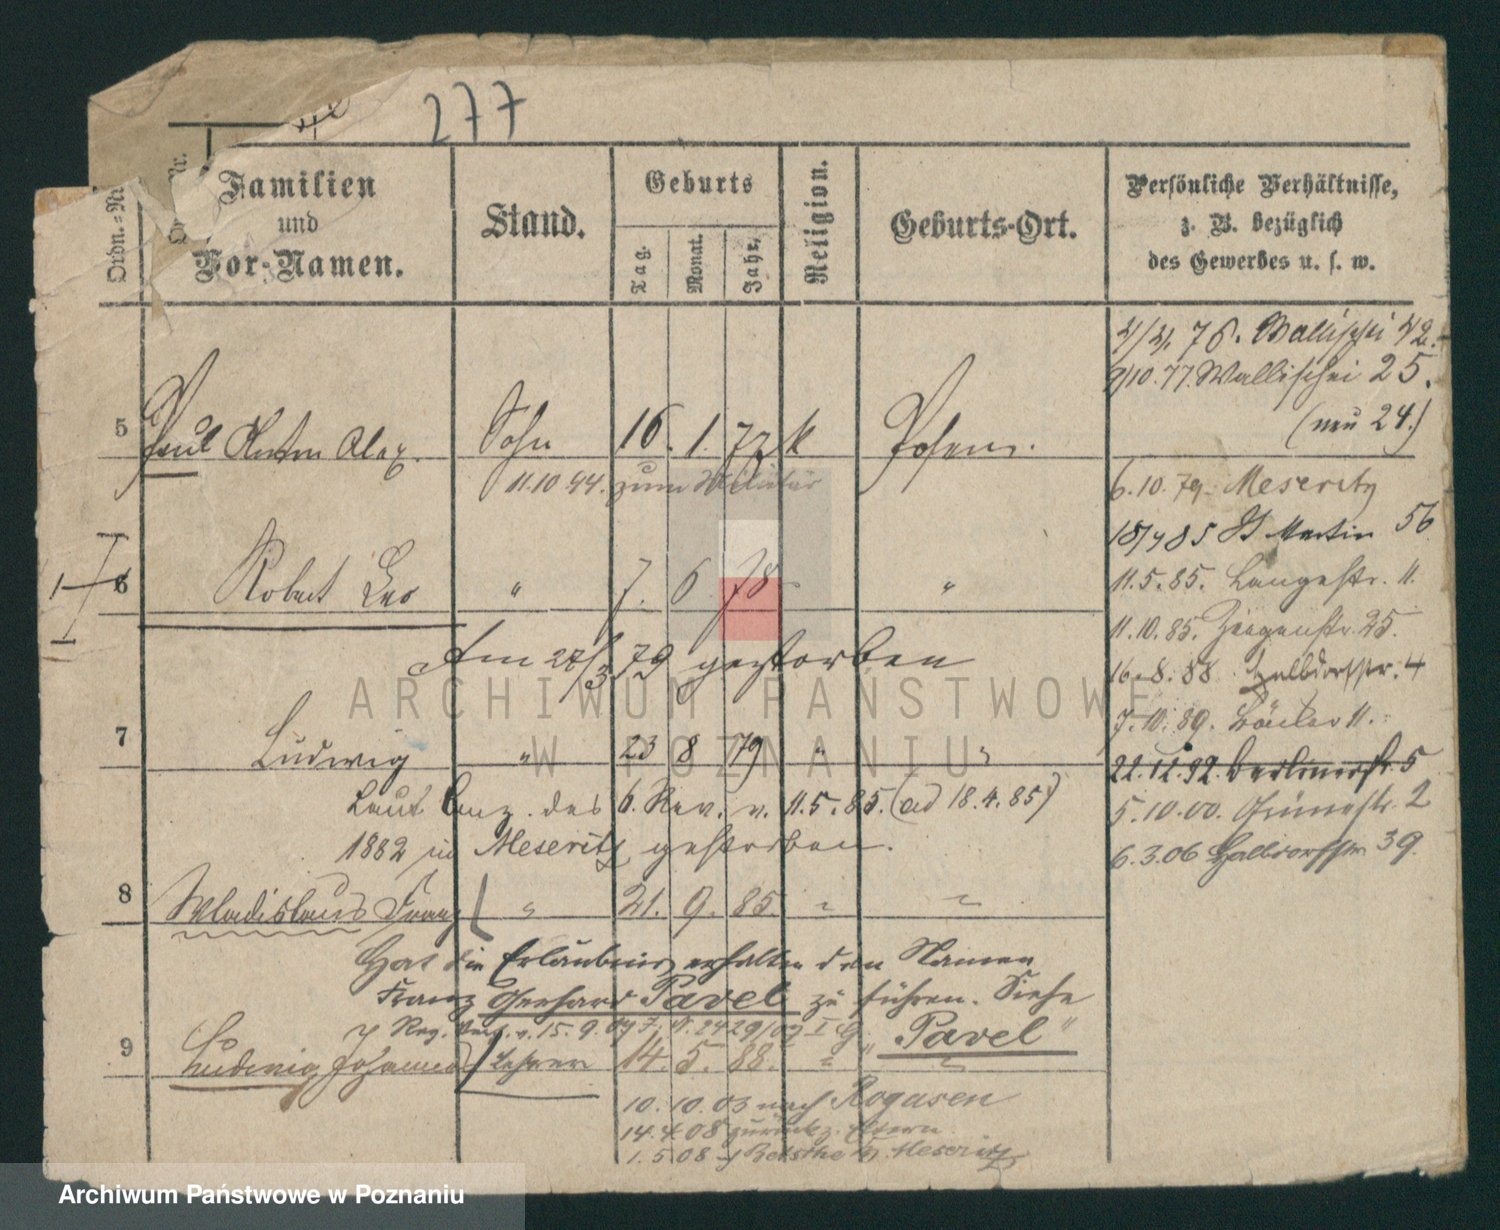 277
Ordn.=Nr.
Familien
und
Vor-Namen.
Stand.
Geburts
Tag.
Monat.
Jahr.
Religion.
Geburts-Ort.
Persönliche Verhältnisse,
z. B. bezüglich
des Gewerbes u. s. w.
4/4. 76. Wallischei 42.
9/10.77. Wallischei 25.
(neu 24.)
5 Paul Anton Alex. Sohn 16. 1. 77 k Posen.
11.10.94. zum Militär
6.10.79. Meseritz
18/4 85 St Martin 56
6 Robert Leo " 7. 6 78 "
11.5.85. Langestr. 11.
11.10.85. Ziegenstr. 25.
Am 27/3 79 gestorben
16.8.88. Halbdorfstr. 4
7.10.89. 11.
7 Ludwig " 23 8 79 " "
22.12.92. Berlinerstr. 5
Laut Anz. des 6. Rev. v. 11.5.85. (ad 18.4.85)
1882 in Meseritz gestorben.
5.10.00. Grünestr. 2
6.3.06 Halbdorfstr. 39.
8 Wladislaus Franz " 21. 9. 85. " "
Hat die Erlaubnis erhalten den Namen
Franz Gerhard Pavel zu führen. Siehe
Reg. v. 15.9.09 J. N. 2429/09 I G. "Pavel"
9 Ludwig Johannes Lehrer 14. 5. 88. " "
10.10.03 nach Rogasen
14.4.08 zurück z. Eltern
1.5.08 Meseritz
ARCHIWUM PAŃSTWOWE
W POZNANIU
Archiwum Państwowe w Poznaniu